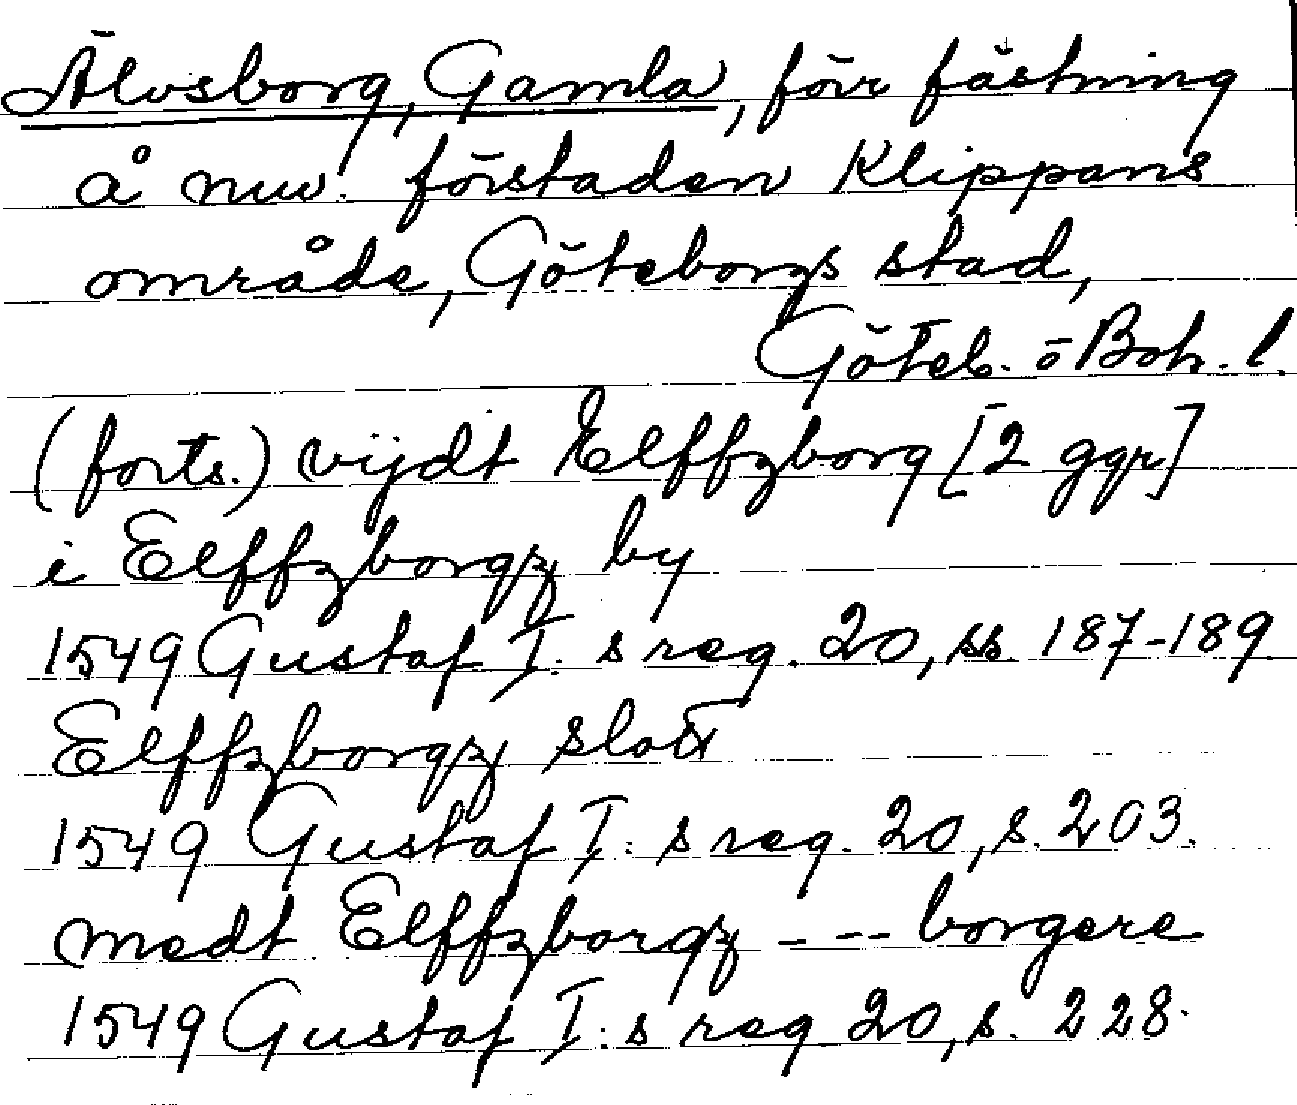 Älvsborg, Gamla, förr fästning
å nuv. förstaden Klippans
område, Göteborgs stad,
Göteb. o Boh. l.
(forts.) vijdt Elffzborg [2 ggr]
i Elffzborgz by
1549 Gustaf I:s reg. 20, ss 187-189
Elffzborgz slott
1549 Gustaf I:s reg. 20, s. 203.
medt Elffzborgz - -- borgere
1549 Gustaf I:s reg 20, s. 228.